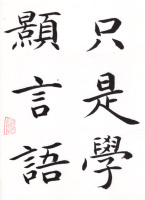 只是學
顯言語